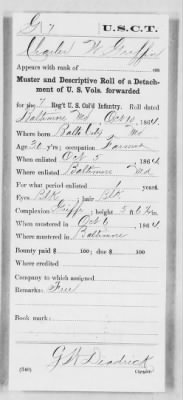 G 7 U.S.C.T.
Charles W Griffin
Appears with rank of on
Muster and Descriptive Roll of a Detach-
ment of U. S. Vols. forwarded
for the 7 Reg't U. S. Col'd Infantry. Roll dated
Baltimore Md Oct 10, 1864.
Where born Balto City Md
Age 20 y'rs; occupation Farmer
When enlisted Oct 5, 1864.
Where enlisted Baltimore Md
For what period enlisted 1 years.
Eyes Blk; hair Blk
Complexion Griffe; height 5 ft. in.
When mustered in Oct 6, 1864.
Where mustered in Baltimore
Bounty paid $ 100; due $ 100
Where credited
Company to which assigned
Remarks: Free
Book mark:
G W Deadrick
(340) Copyist.